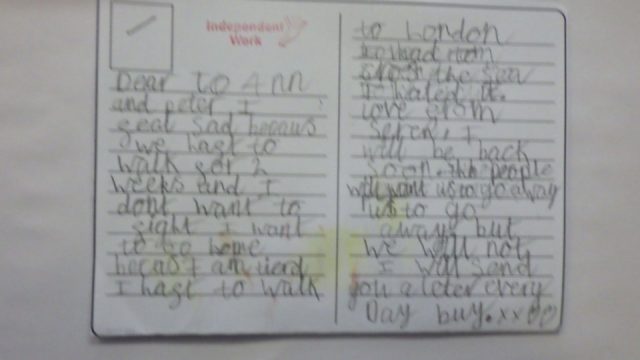 Independent
Work
Dear to Ann
and peter I
feal sad becaus
we haft to
walk for 2
weeks and I
dont want to
fight I want
to go home
becas I am tierd
I haft to walk
to London
to had
from the sea
I hated it.
love from
I
will be back
soon. the people
will want us to go away
us to go
away but
we will not
I will send
you a leter every
Day buy. xx00